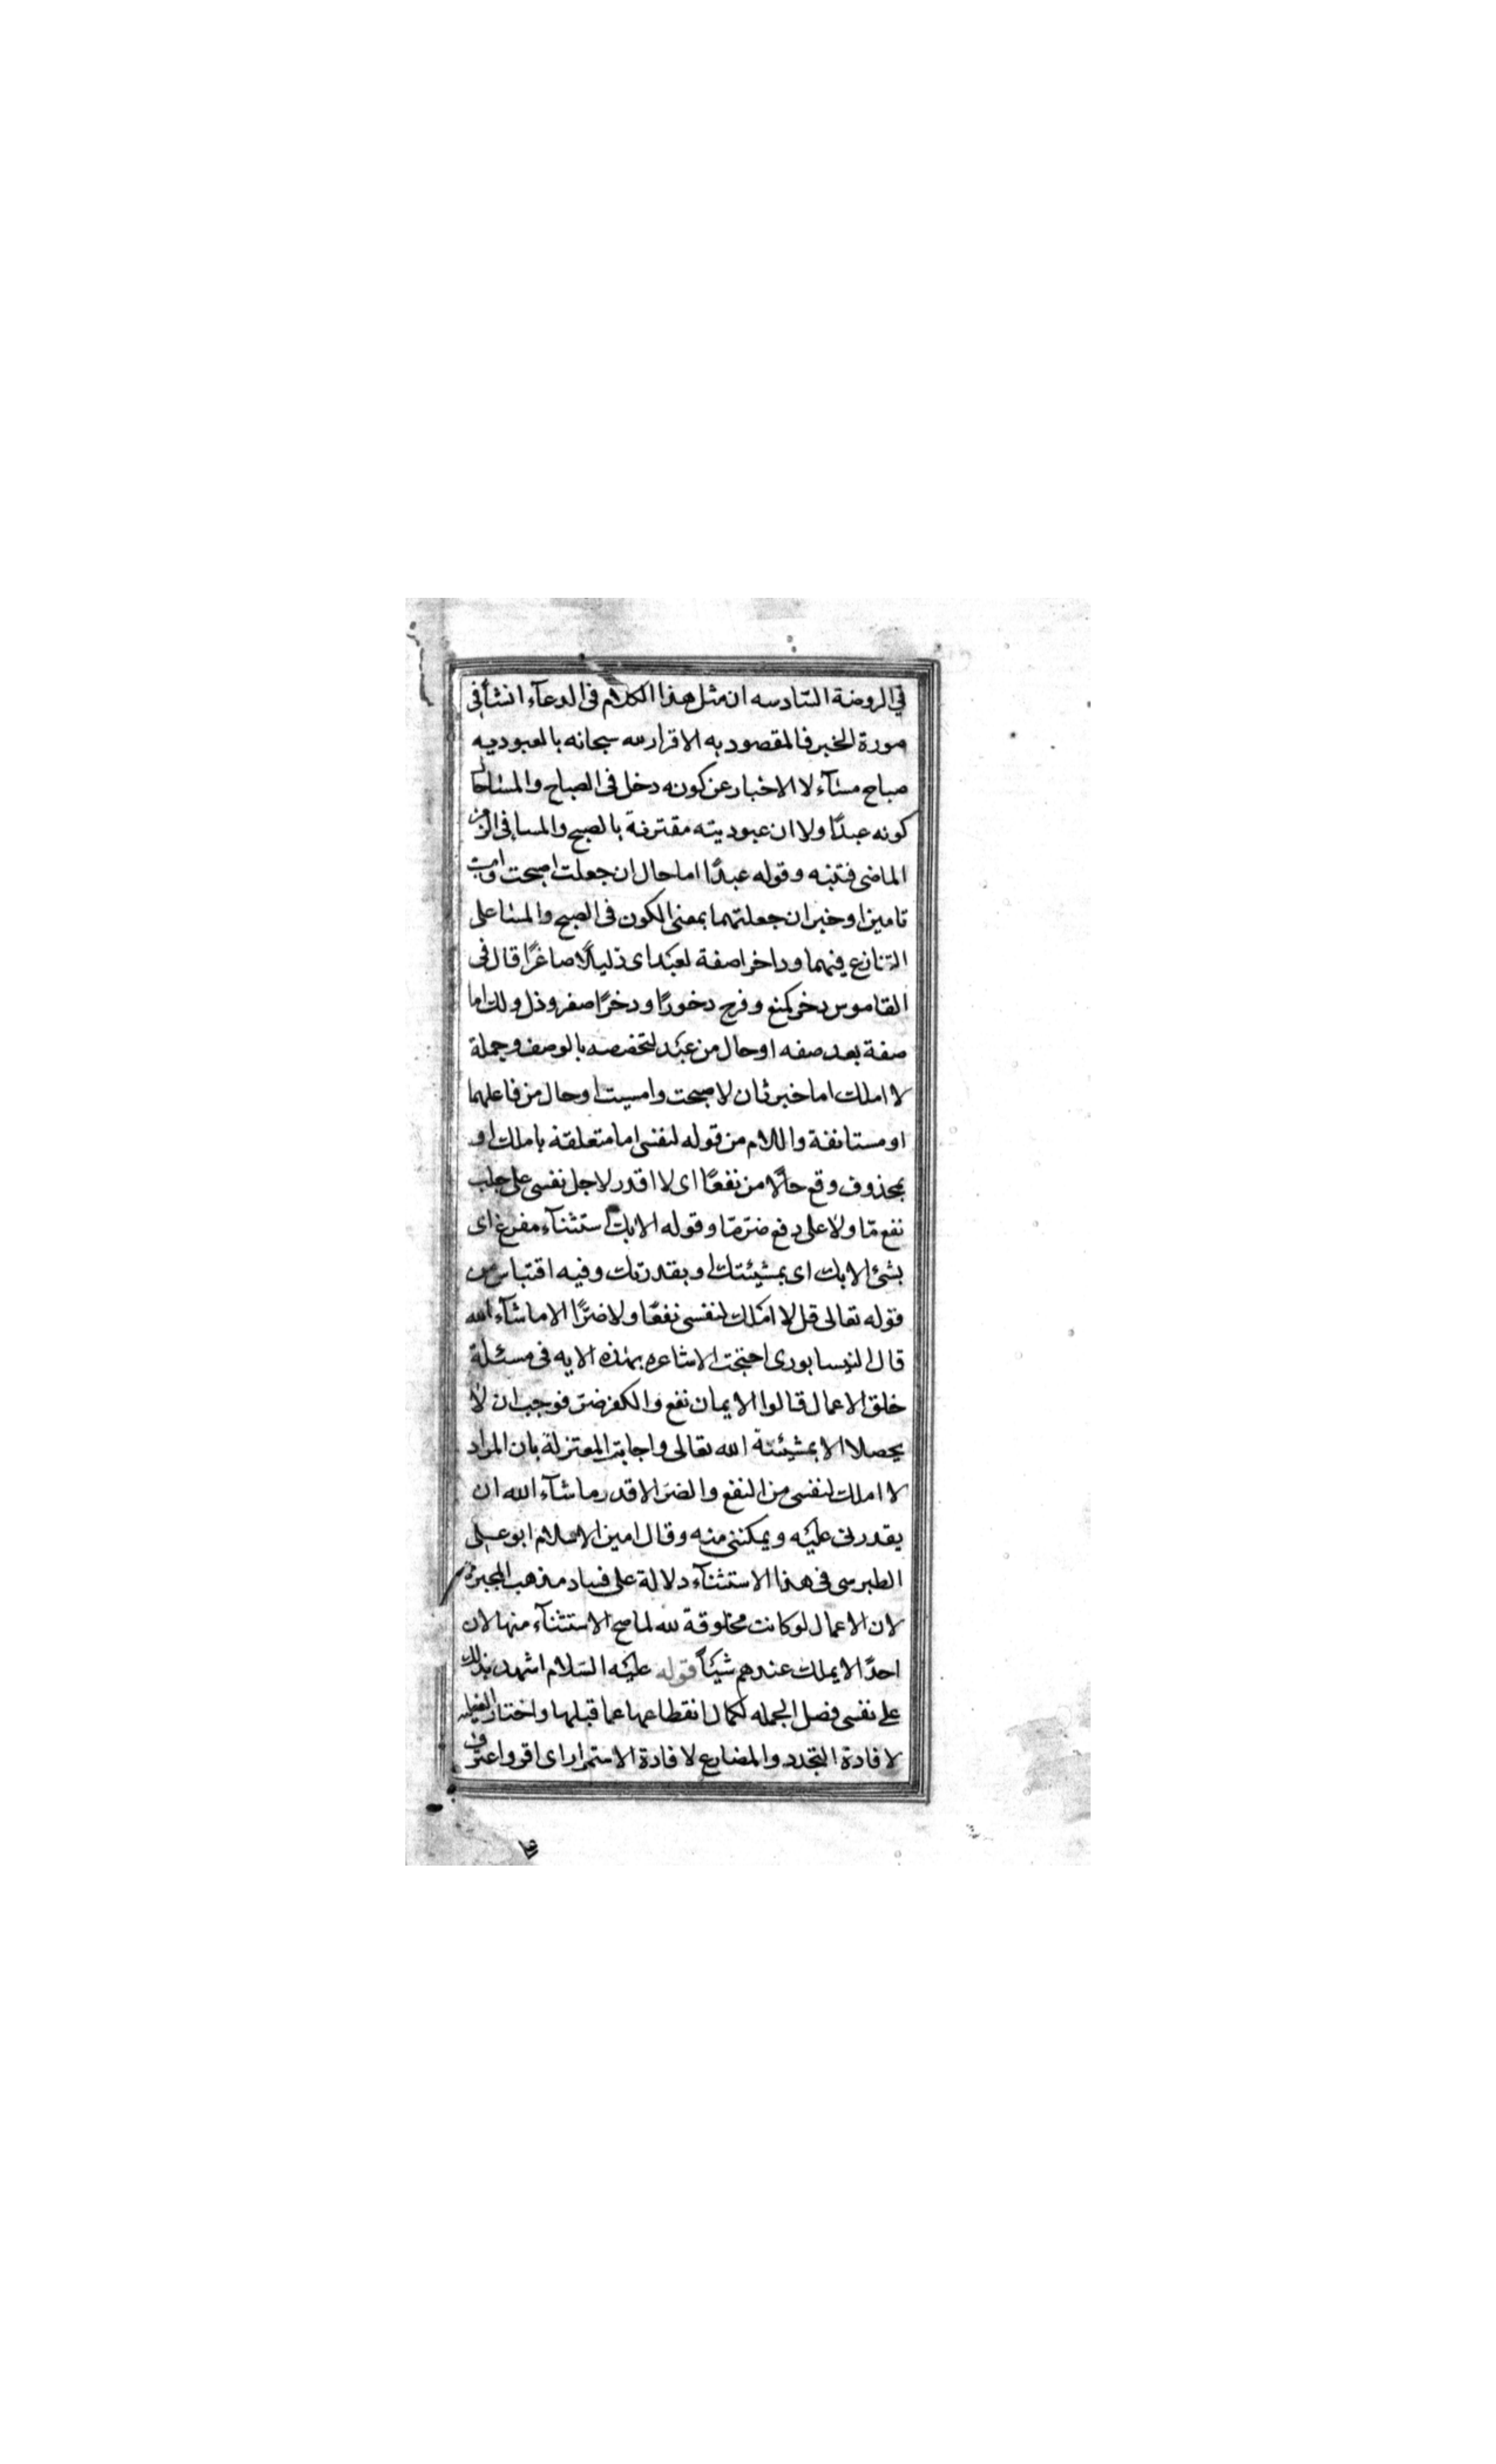 في الروضة السادسه ان مثل هذا الكلام فى الدعآء انشأ فى
صورة الخبر فالمقصود به الاقرار لله سبحانه بالعبوديه
صباح مسآء لا الاخبار عن كونه دخل فى الصباح والمسا حال
كونه عبدًا ولا ان عبوديته مقترنة بالصبح والمسا فى الزمن
الماضى فتنبه وقوله عبدًا اما حال ان جعلت اصبحت وامسيت
تامين او خبر ان جعلتهما بمعنى الكون فى الصبح والمسا على
التنازع فيهما وداخرا صفة لعبد اى ذليلًا صاغرًا قال فى
القاموس دخر كمنع وفرح دخورًا ودخرًا صغر وذل ولك اما
صفة بعد صفه او حال من عبد لتخصصه بالوصف وجملة
لا املك اما خبر ثان لاصبحت وامسيت او حال من فاعلهما
او مستانفة واللام من قوله لنفسى اما متعلقة باملك او
بمحذوف وقع حالًا من نفعًا اى لا اقدر لاجل نفسى على جلب
نفع مّا ولا على دفع ضرّ مّا وقوله الا بك استثنآء مفرغ اى
بشئ الا بك اى بمشيئتك او بقدرتك وفيه اقتباس من
قوله تعالى قل لا املك لنفسى نفعًا ولا ضرًّا الا ما شآء الله
قال النيسابورى احتجت الاشاعره بهذه الايه فى مسئلة
خلق الاعمال قالوا الايمان نفع والكفر ضر فوجب ان لا
يحصلا الا بمشيئة الله تعالى واجابت المعتزلة بان المراد
لا املك لنفسى من النفع والضر الا قدر ما شآء الله ان
يقدرنى عليه ويمكننى منه وقال امين الاسلام ابو على
الطبرسى فى هذا الاستثنآء دلالة على فساد مذهب المجبرة
لان الاعمال لو كانت مخلوقة لله لما صح الاستثنآء منها لان
احدًا لا يملك عندهم شيئًا قوله عليه السلام اشهد بذلك
على نفسى فصل الجمله لكمال انقطاعها عما قبلها واختار الفعليه
لافادة التجدد والمضارع لافادة الاستمرار اى اقر واعترف